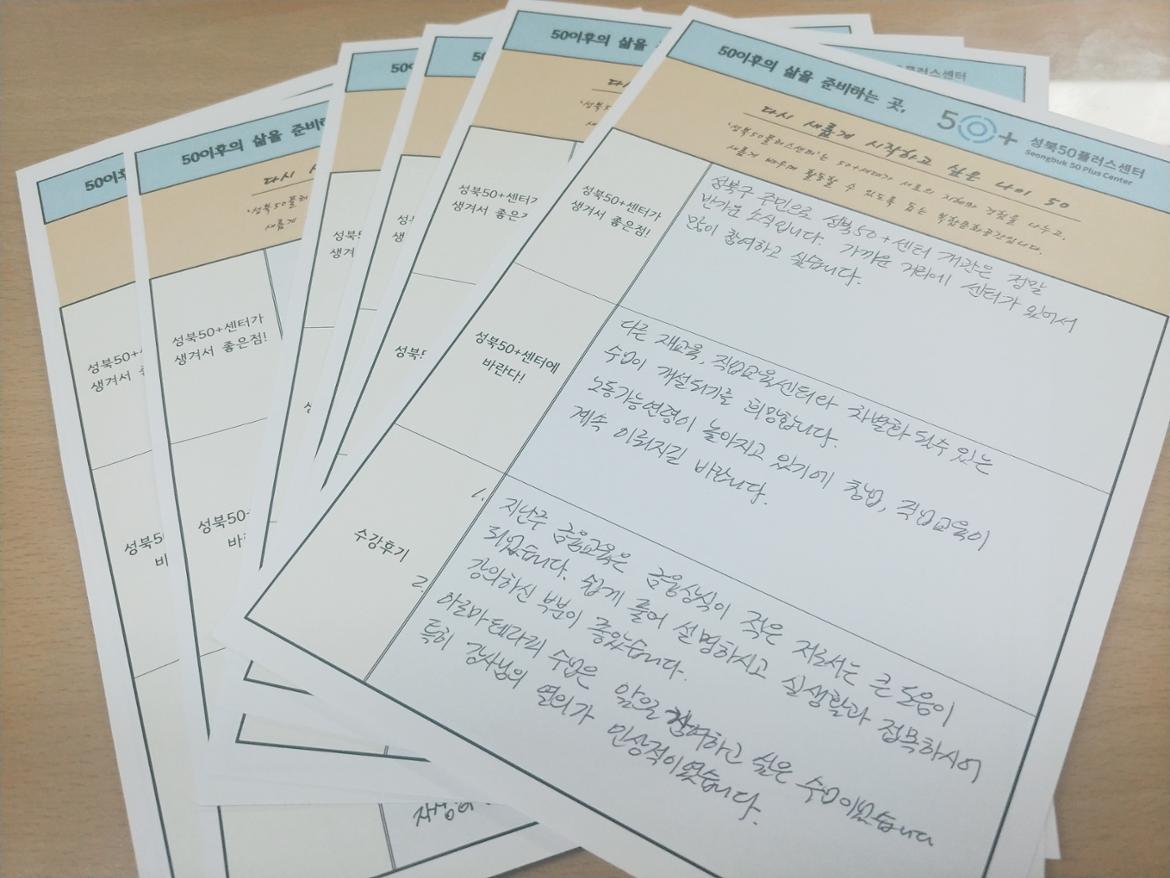 50이후의 삶을 준비하는 곳,
50+ 성북50플러스센터
Seongbuk 50 Plus Center
다시 새롭게 시작하고 싶은 나이 50
'성북50플러스센터'는 50+세대가 서로의 지혜와 경험을 나누고,
새롭게 배우며 활동할 수 있도록 돕는 복합문화공간입니다.
성북50+센터가
생겨서 좋은점!
성북구 주민으로 성북50+센터 개관은 정말
반가운 소식입니다. 가까운 거리에 센터가 있어서
많이 참여하고 싶습니다.
성북50+센터에
바란다!
다른 재교육, 직업교육센터와 차별화 될수 있는
수업이 개설되기를 희망합니다.
노동가능연령이 높아지고 있기에 창업, 직업교육이
계속 이뤄지길 바랍니다.
수강후기
1. 지난주 금융교육은 금융상식이 적은 저로서는 큰 도움이
되었습니다. 쉽게 풀어 설명하시고 실생활과 접목하시어
강의하신 부분이 좋았습니다.
2. 아로마테라피 수업은 앞으로 참여하고 싶은 수업이었습니다
특히 강사님의 열의가 인상적이었습니다.
50이후의 삶을
성북50+센터가
생겨서 좋은
50
50
50이후의 삶을 준비
다시
'성북50플러스
새롭게
성북50+센터가
생겨서 좋은점!
성북50
바
50이
성북50+
생겨서 좋
성북5
바
플러스센터